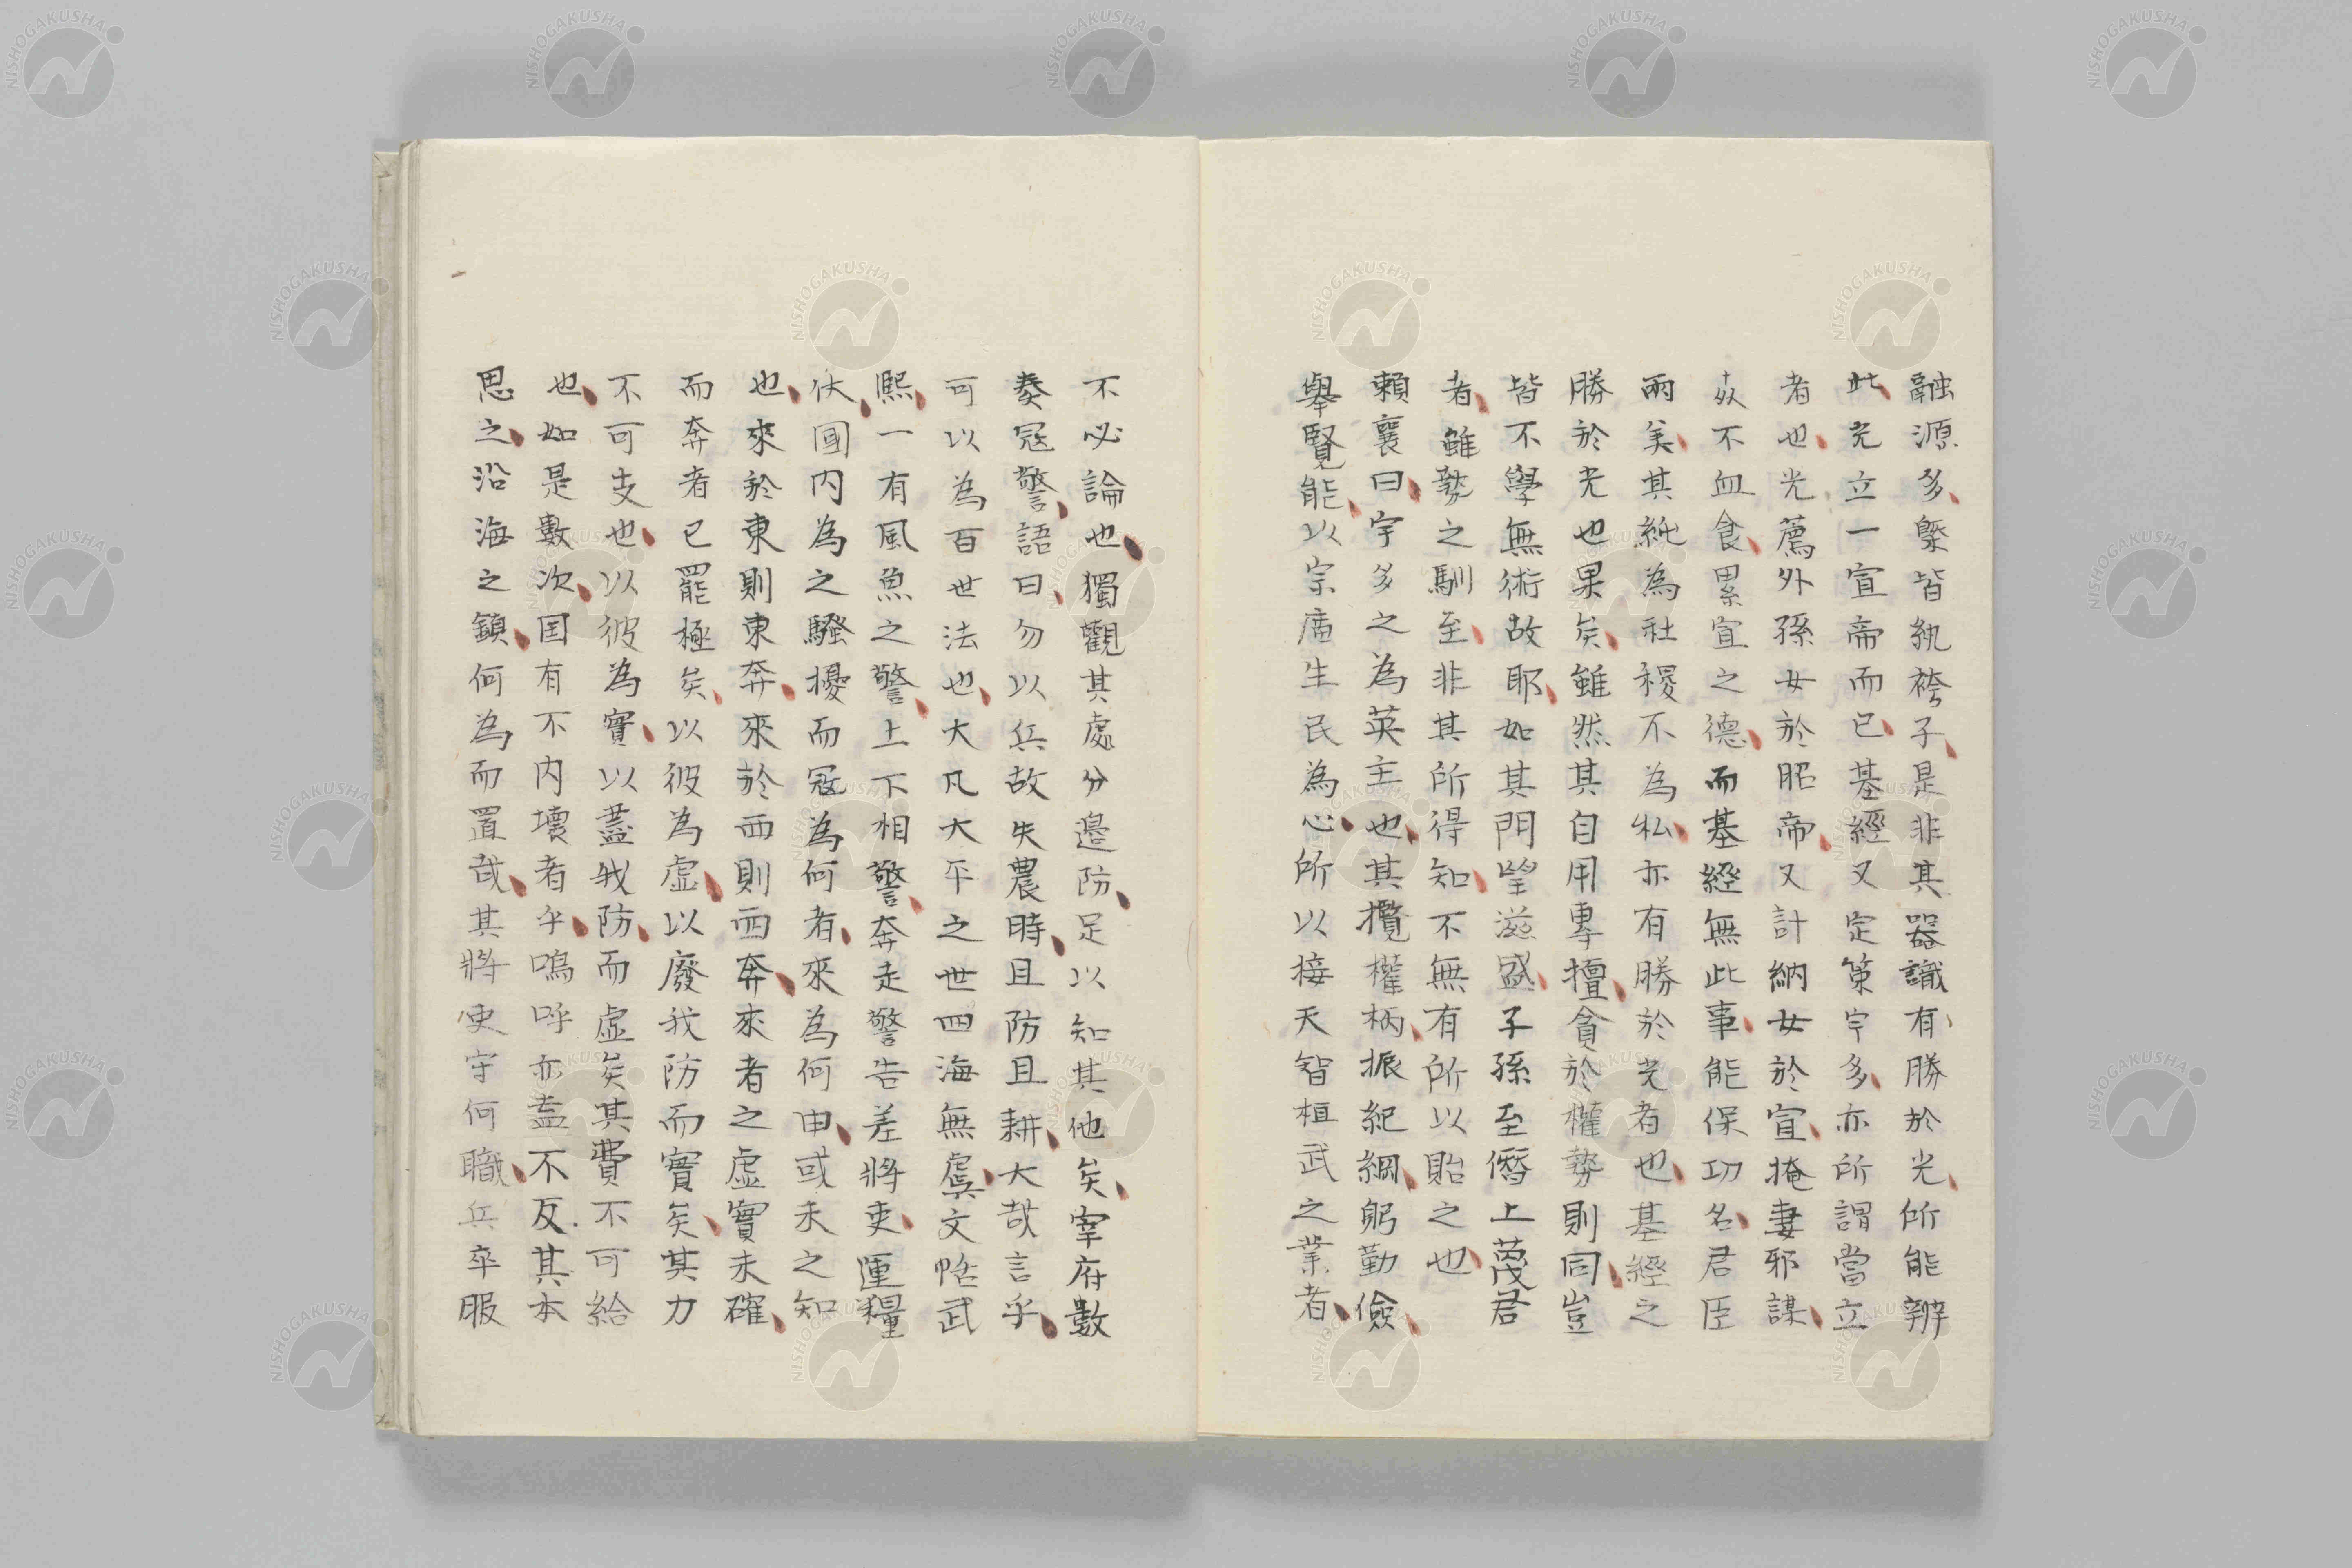 融源多槩皆紈袴子是非其器識有勝於光所能辨
此光立一宣帝而已基經又定策宇多亦所謂當立
者也光薦外孫女於昭帝又計納女於宣掩妻邪謀
以不血食累宣之德而基經無此事能保功名君臣
兩美其純為社稷不為私亦有勝於光者也基經之
勝於光也果矣雖然其自用專擅貪於權勢則同豈
皆不學無術故耶如其門望滋盛子孫至僭上蔑君
者雖勢之馴至非其所得知不無有所以貽之也
賴襄曰宇多之為英主也其攬權柄振紀綱躬勤儉
舉賢能以宗廟生民為心所以接天智桓武之業者
不必論也獨觀其處分邊防足以知其他矣宰府數
奏寇警語曰勿以兵故失農時且防且耕大哉言乎
可以為百世法也大凡大平之世四海無虞文恬武
熈一有風魚之警上下相警奔走警告差將吏運糧
仗國内為之騷擾而寇為何者來為何由或未之知
也來於東則東奔來於西則西奔來者之虛實未確
而奔者已罷極矣以彼為虛以廢我防而實矣其力
不可支也以彼為實以盡我防而虛矣其費不可給
也如是數次国有不内壞者乎嗚呼亦盍不反其本
思之沿海之鎮何為而置哉其將吏守何職兵卒服
NISHOGAKUSHA